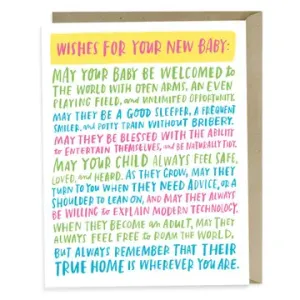 WISHES FOR YOUR NEW BABY:
MAY YOUR BABY BE WELCOMED to
THE WORLD WITH OPEN ARMS, AN EVEN
PLAYING FIELD, and UNLIMITED OPPORTUNITY.
MAY THEY BE A GOOD SLEEPER, A FREQUENT
SMILER, and POTTY TRAIN WITHOUT BRIBERY.
MAY THEY BE BLESSED WITH THE ABILITY
to ENTERTAIN THEMSELVES, and BE NATURALLY TIDY.
MAY YOUR CHILD ALWAYS FEEL SAFE,
LOVED, and HEARD. AS THEY GROW, MAY THEY
TURN TO YOU WHEN THEY NEED ADVICE, or A
SHOULDER TO LEAN ON, AND MAY THEY ALWAYS
BE WILLING to EXPLAIN MODERN TECHNOLOGY.
WHEN THEY BECOME an ADULT, MAY THEY
ALWAYS FEEL FREE to ROAM THE WORLD,
BUT ALWAYS REMEMBER THAT THEIR
TRUE HOME IS WHEREVER YOU ARE.